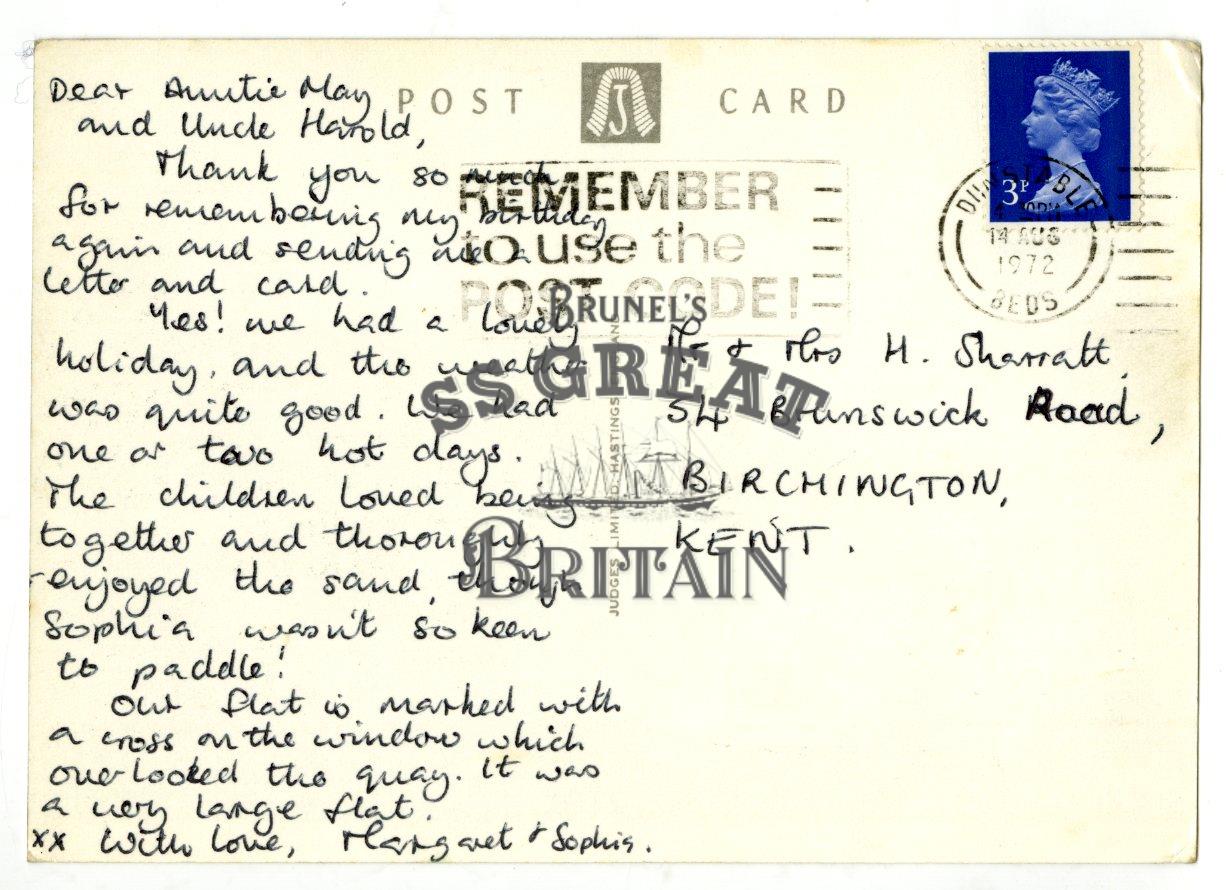 Dear Auntie May
and Uncle Harold,
Thank you so much
for remembering my birthday
again and sending me a
letter and card.
Yes! we had a lovely
holiday, and the weather
was quite good. We had
one or two hot days.
The children loved being
together and thoroughly
enjoyed the sand, though
Sophia wasn't so keen
to paddle!
Our flat is marked with
a cross on the window which
overlooked the quay. It was
a very large flat.
xx With love, Margaret & Sophia.
POST CARD
J
REMEMBER
to use the
POST CODE!
3P
DUNSTABLE
14 AUG
1972
BEDS
Mr & Mrs H. Sharratt,
54 Brunswick Road,
BIRCHINGTON,
KENT.
JUDGES LIMITED HASTINGS
BRUNEL'S
SS GREAT
BRITAIN